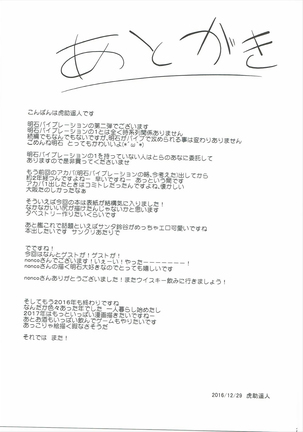 あとがき
こんばんは虎助遥人です
明石バイブレーションの第二弾でございます
明石バイブレーションの1とは全く時系列関係ありません
続編でもなんでもないですが、明石がバイブで攻められる事は変わりありません
ごめんな明石 とってもかわいいよ(*´ω`*)
明石バイブレーションの1を持っていない人はとらのあなに委託して
ありますので是非買ってくださいませ
もう前回のアカバ(明石バイブレーションの略、今考えた)出してから
約2年経つんですよねー 早いですねー あっという間です
アカバ1出したときはコミトレだったんですよね、懐かしい
大阪たのしかったなぁ
そういえば今回の本は表紙が結構気に入りました！
なかなかいい尻が描けたんじゃないかと思います
タペストリー作りたいくらいです
あと艦これで話題といえばサンタ鈴谷がめっちゃエロ可愛いですね
本出したいです サンクリあたりで
でですね！
今回はなんとゲストが！ゲストが！
noncoさんでございます！いぇーい！やったーーーーーーー！
noncoさんの描く明石大好きなのでとっても嬉しいです
noncoさんありがとうございました！またウイスキー飲みに行きましょう！
そしてもう2016年も終わりですね
なんだか色々あった年でした 一人暮らし始めたし
2017年はもっといっぱい漫画描きたいですねー
あとお酒もいっぱい飲んでゲームもやりたいです
あっこりゃ絵描く暇なさそうだ
それでは また！
2016/12/29 虎助遥人